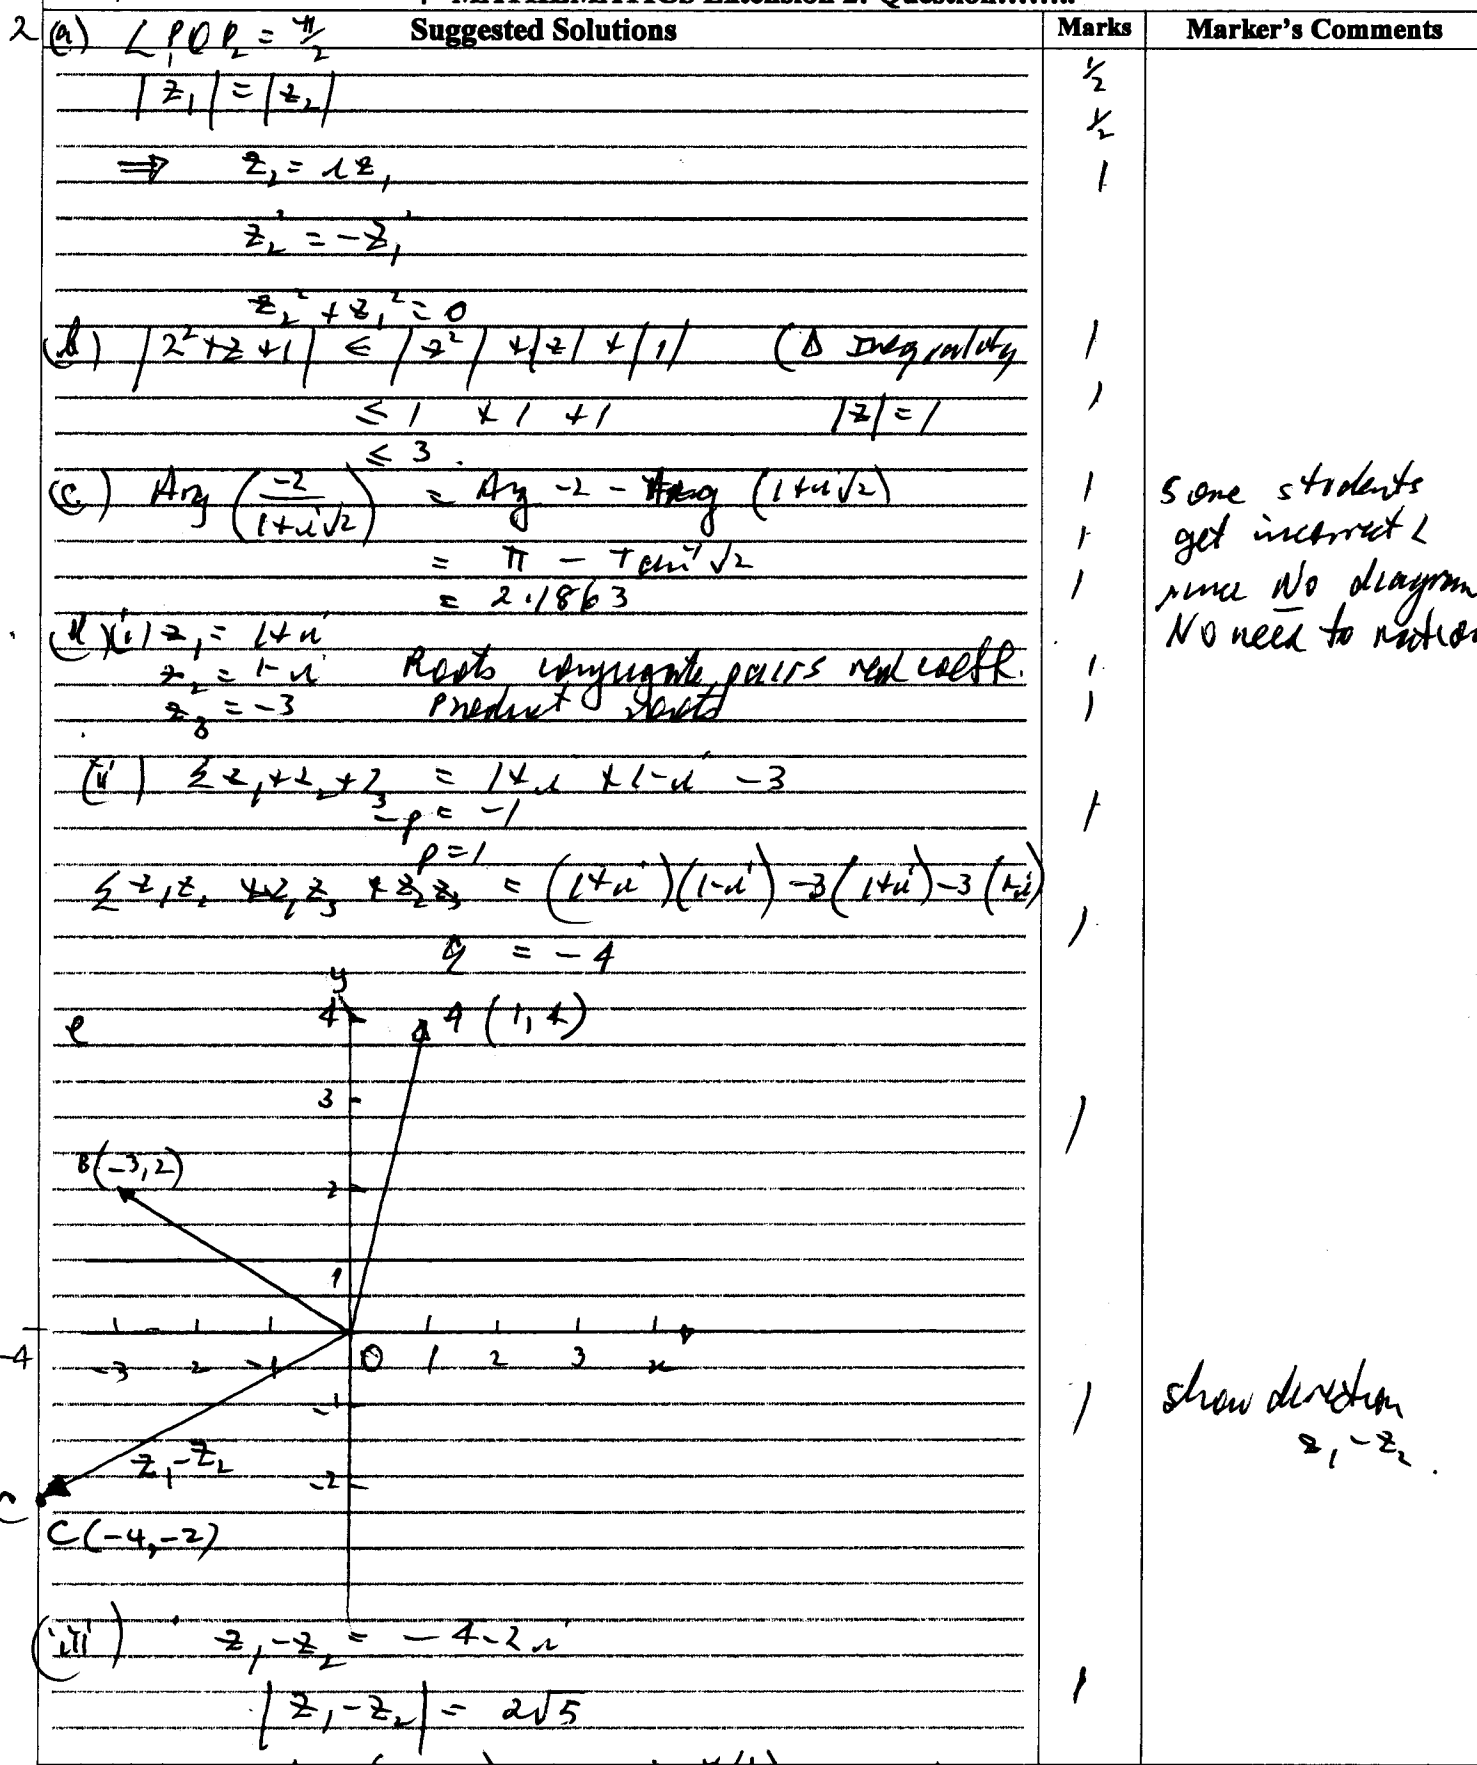 MATHEMATICS Extension 2: Question.........
Suggested Solutions
Marks
Marker's Comments
2 (a) ∠P₁OP₂ = π/2
|z₁| = |z₂|
½
½
⇒ z₂ = iz₁
1
z₂² = -z₁²
z₂² + z₁² = 0
(b) |z² + z + 1| ≤ |z²| + |z| + |1| (Δ Inequality
1
≤ 1 + 1 + 1 |z| = 1
1
≤ 3.
(c) Arg (-2/(1+i√2)) = Arg -2 - Arg (1+i√2)
1
= π - Tan⁻¹√2
1
= 2.1863
1
some students
get incorrect ∠
since No diagram
No need to
(d) (i) z₁ = 1+i
z₂ = 1-i Roots conjugate pairs real coeff.
1
z₃ = -3 Product roots
1
(ii) Σ z₁+z₂+z₃ = 1+i + 1-i - 3
-p = -1
1
p = 1
Σ z₁z₂ + z₁z₃ + z₂z₃ = (1+i)(1-i) - 3(1+i) - 3(1-i)
1
q = -4
e
y
4
A (1, 4)
3
1
B(-3, 2)
2
1
-4 -3 -2 -1 O 1 2 3 x
-1
1
show direction
z₁ - z₂.
z₁ - z₂
-2
C(-4, -2)
(iii) z₁ - z₂ = -4-2i
|z₁ - z₂| = 2√5
1